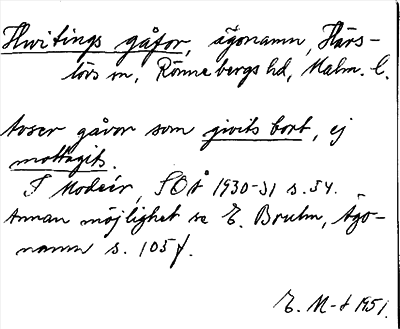 Hwitings gåfor, ägonamn, Härs-
lövs sn, Rönnebergs hd, Malm. l.
Avser gåvor som givits bort, ej
mottagits.
I Modéer, SOÅ 1930-31 s. 54.
Annan möjlighet se E. Bruhn, Ägo-
namn s. 105f.
E. M-d 1951.